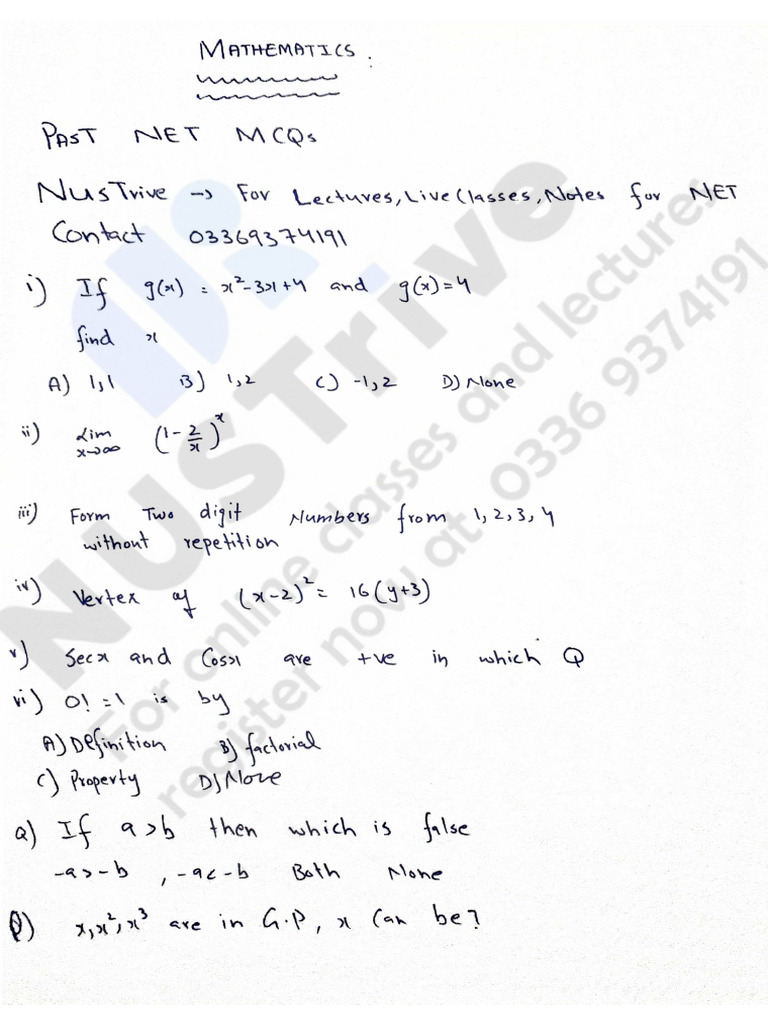 MATHEMATICS :
PAST NET MCQs
NUSTrive → For Lectures, Live Classes, Notes for NET
Contact 03369374191
i) If g(x) = x²-3x+4 and g(x)=4
find x
A) 1,1 B) 1,2 C) -1,2 D) None
ii) Lim x→∞ (1 - 2/x)^x
iii) Form Two digit Numbers from 1, 2, 3, 4
without repetition
iv) Vertex of (x-2)² = 16(y+3)
v) Secx and Cosx are +ve in which Q
vi) 0! = 1 is by
A) Definition B) factorial
C) Property D) None
Q) If a>b then which is false
-a>-b , -a<-b Both None
Q) x, x², x³ are in G.P, x can be?
NUSTrive
For online classes and lectures
register now at 0336 9374191